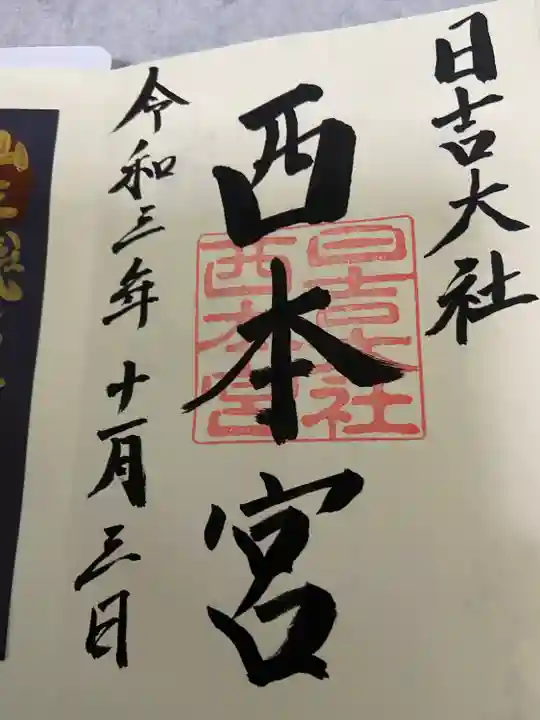 日吉大社
西本宮
日吉大社
西本宮
令和三年十一月三日